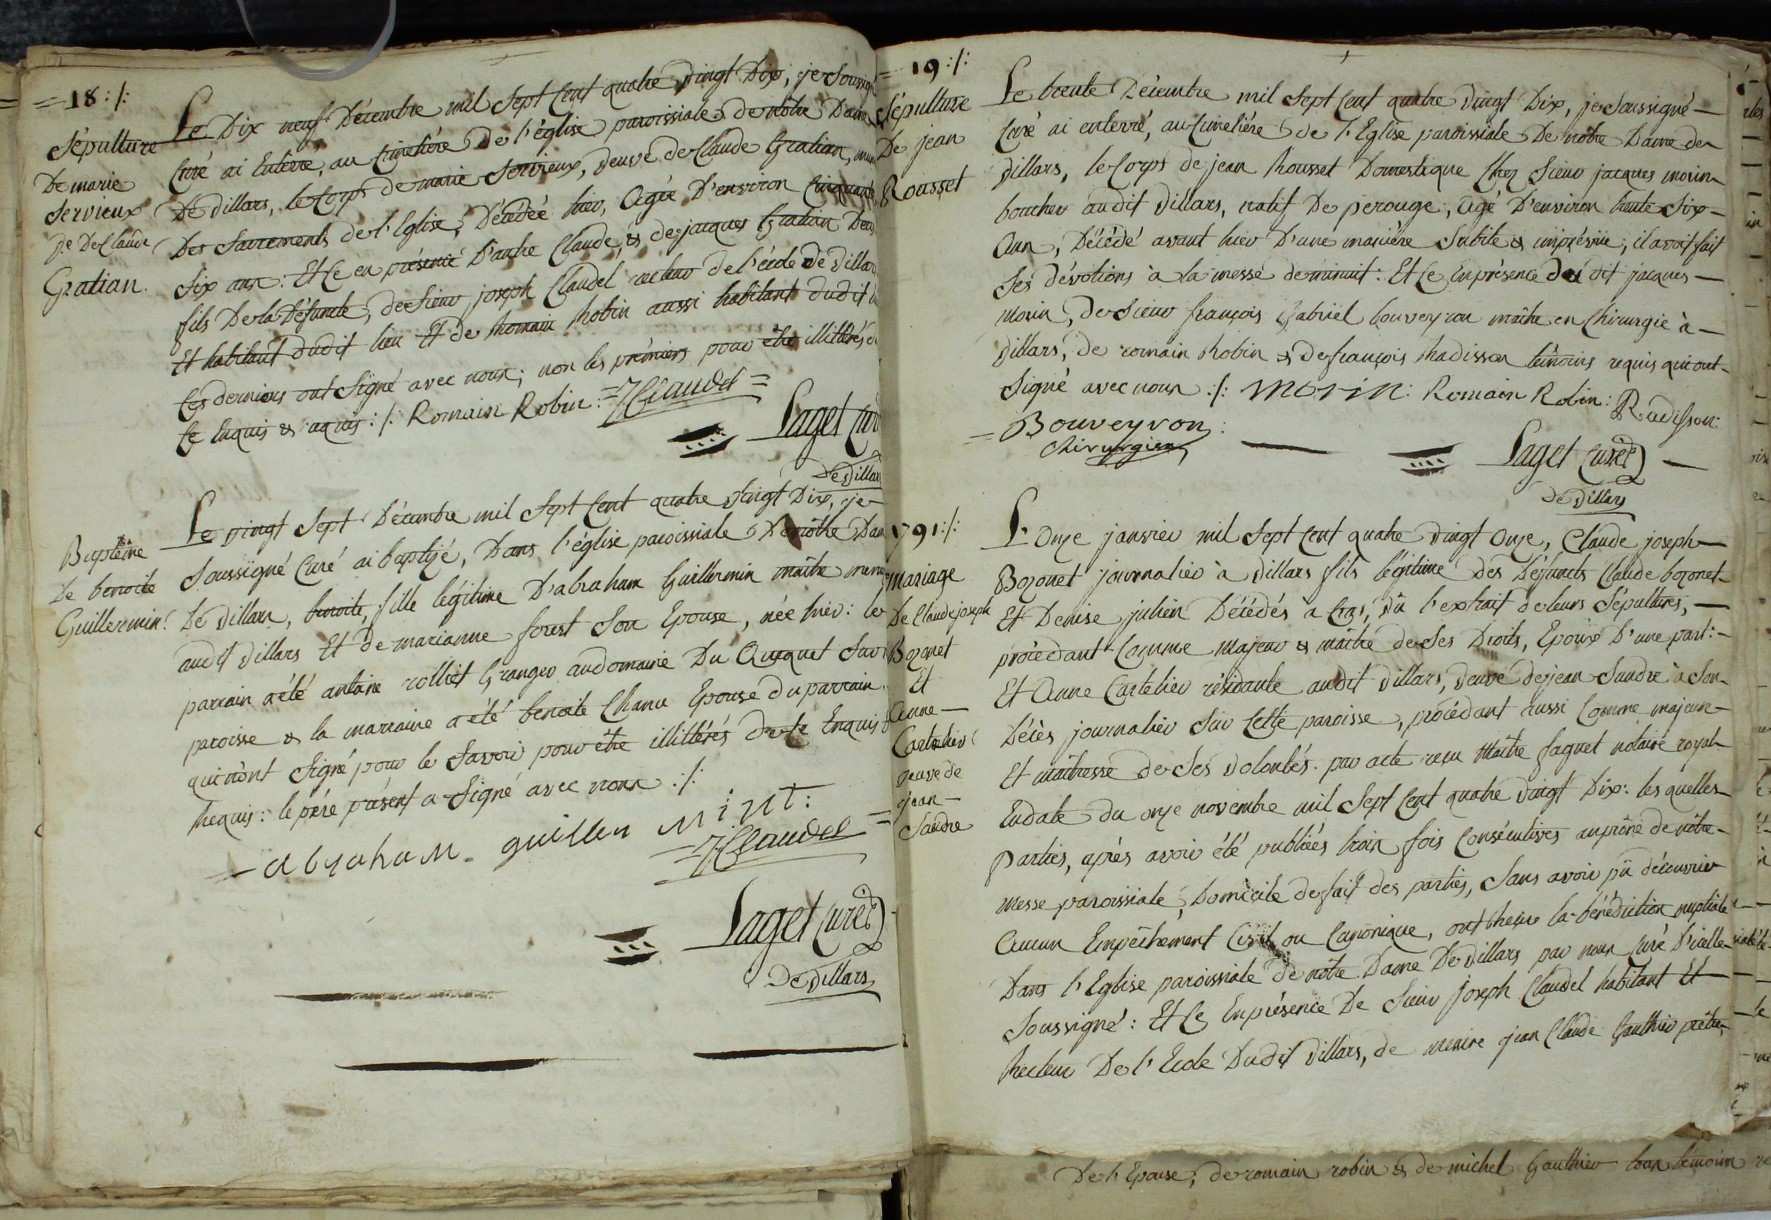 = 18 :/:
Sépulture
De marie
Servieux
vve De Claude
Gratian.
Le Dix neuf Décembre mil Sept Cent quatre vingt Dix, je Soussigné
Curé ai Enterré, au Cimetière De l'église paroissiale De notre Dame
De villars, le Corps de marie Servieux, veuve de Claude Gratian, munie
Des Sacrements de l'Eglise, Décédée hier, Agée D'environ Cinquante
Six ans : Et Ce en présence D'autre Claude, & de jacques Gratian Deux
fils De la Défunte, de Sieur joseph Claudel recteur de l'école De villars
Et habitant dudit lieu Et de Romain Robin aussi habitant dudit
Ces derniers ont Signé avec nous ; non les premiers pour être illittérés
De Enquis & requis :/: Romain Robin : = JClaudel =
Laget Curé
De villars
Baptême
De benoite
Guillermin
Le vingt Sept Décembre mil Sept Cent quatre vingt Dix, je
Soussigné Curé ai baptisé, Dans l'église paroissiale De nôtre Dame
De villars, benoite, fille légitime D'abraham Guillermin maître
audit villars Et de marianne forest Son Epouse, née hier : le
parrain a été antoine rolliet Granger au domaine Du Quiquet Sur
paroisse & la marraine a été benoite Chanu Epouse du parrain,
qui n'ont Signé pour le Savoir pour être illittérés de ce Enquis &
Requis : le père présent a Signé avec nous :/:
- abraham guillermint :
= JClaudel =
Laget Curé
De villars
= 19 :/:
Sépulture
De jean
Rousset
Le trente Décembre mil Sept Cent quatre vingt Dix, je Soussigné
Curé ai enterré, au Cimetière De l'Eglise paroissiale De nôtre Dame de
villars, le Corps de jean Rousset Domestique Chez Sieur jacques morin
boucher audit villars, natif De perouge, âgé D'environ trente Six
Ans, Décédé avant hier D'une manière Subite & imprévue, il avoit fait
Ses dévotions à la messe de minuit : Et Ce En présence dudit jacques
morin, de Sieur françois Gabriel bouveyron maître en Chirurgie à
villars, de romain Robin & de françois Radisson témoins requis qui ont
Signé avec nous :/: morin : Romain Robin : Radisson :
= Bouveyron :
Chirurgien
Laget Curé
De villars
1791 :/:
mariage
De Claude joseph
Bozonet
Et
Anne
Cartelier
veuve de
jean
Sandre
L'Onze janvier mil Sept Cent quatre vingt Onze, Claude joseph
Bozonet journalier à villars fils légitime des Défunts Claude bozonet
Et Denise julien Décédés à Cras, vû l'extrait de leurs Sépultures,
procédant Comme majeur & maître de Ses Droits, Epoux D'une part :
Et Anne Cartelier résidante audit villars, veuve de jean Sandre à Son
Décès journalier Sur Cette paroisse, procédant aussi Comme majeure
Et maîtresse de Ses volontés par acte reçu Maître faguet notaire royal
En date du onze novembre mil Sept Cent quatre vingt Dix : les quelles
Parties, après avoir été publiées trois fois Consécutives au prône de nôtre
messe paroissiale, Domicile de fait des parties, Sans avoir pu découvrir
Aucun Empêchement Civil ou Canonique, ont Reçu la bénédiction nuptiale
Dans l'Eglise paroissiale de nôtre Dame De villars par nous Curé D'icelle
Soussigné : Et Ce En présence De Sieur Joseph Claudel habitant Et
Recteur De l'Ecole Dudit villars, de messire jean Claude Gauthier prêtre,
De l'Epouse, de romain robin & de michel Gauthier tous témoins